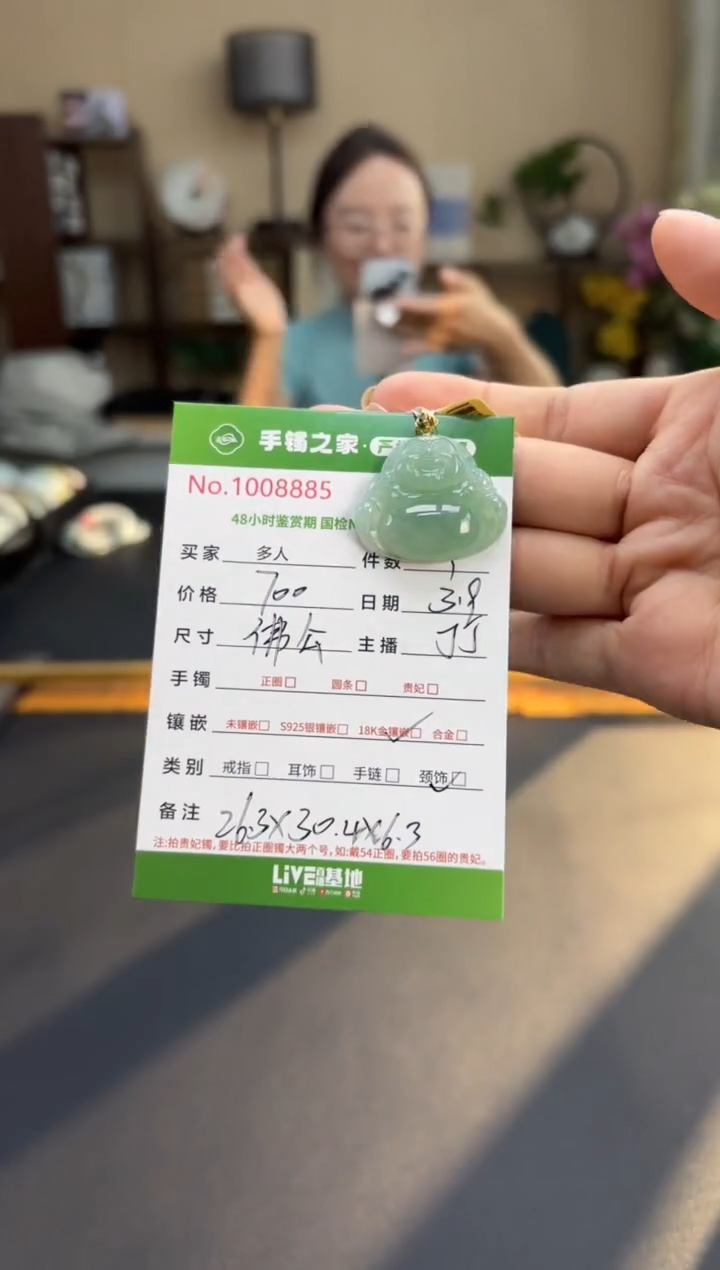 手镯之家·
No.1008885
48小时鉴赏期 国检
买家 多人 件数 1
价格 700 日期 3.9
尺寸 佛公 主播 丁丁
手镯 正圈□ 圆条□ 贵妃□
镶嵌 未镶嵌□ S925银镶嵌□ 18K金镶嵌□ 合金□
类别 戒指□ 耳饰□ 手链□ 颈饰□
备注 26.3X30.4X6.3
注:拍贵妃镯,要比拍正圈镯大两个号,如:戴54正圈,要拍56圈的贵妃。
LiVE 基地